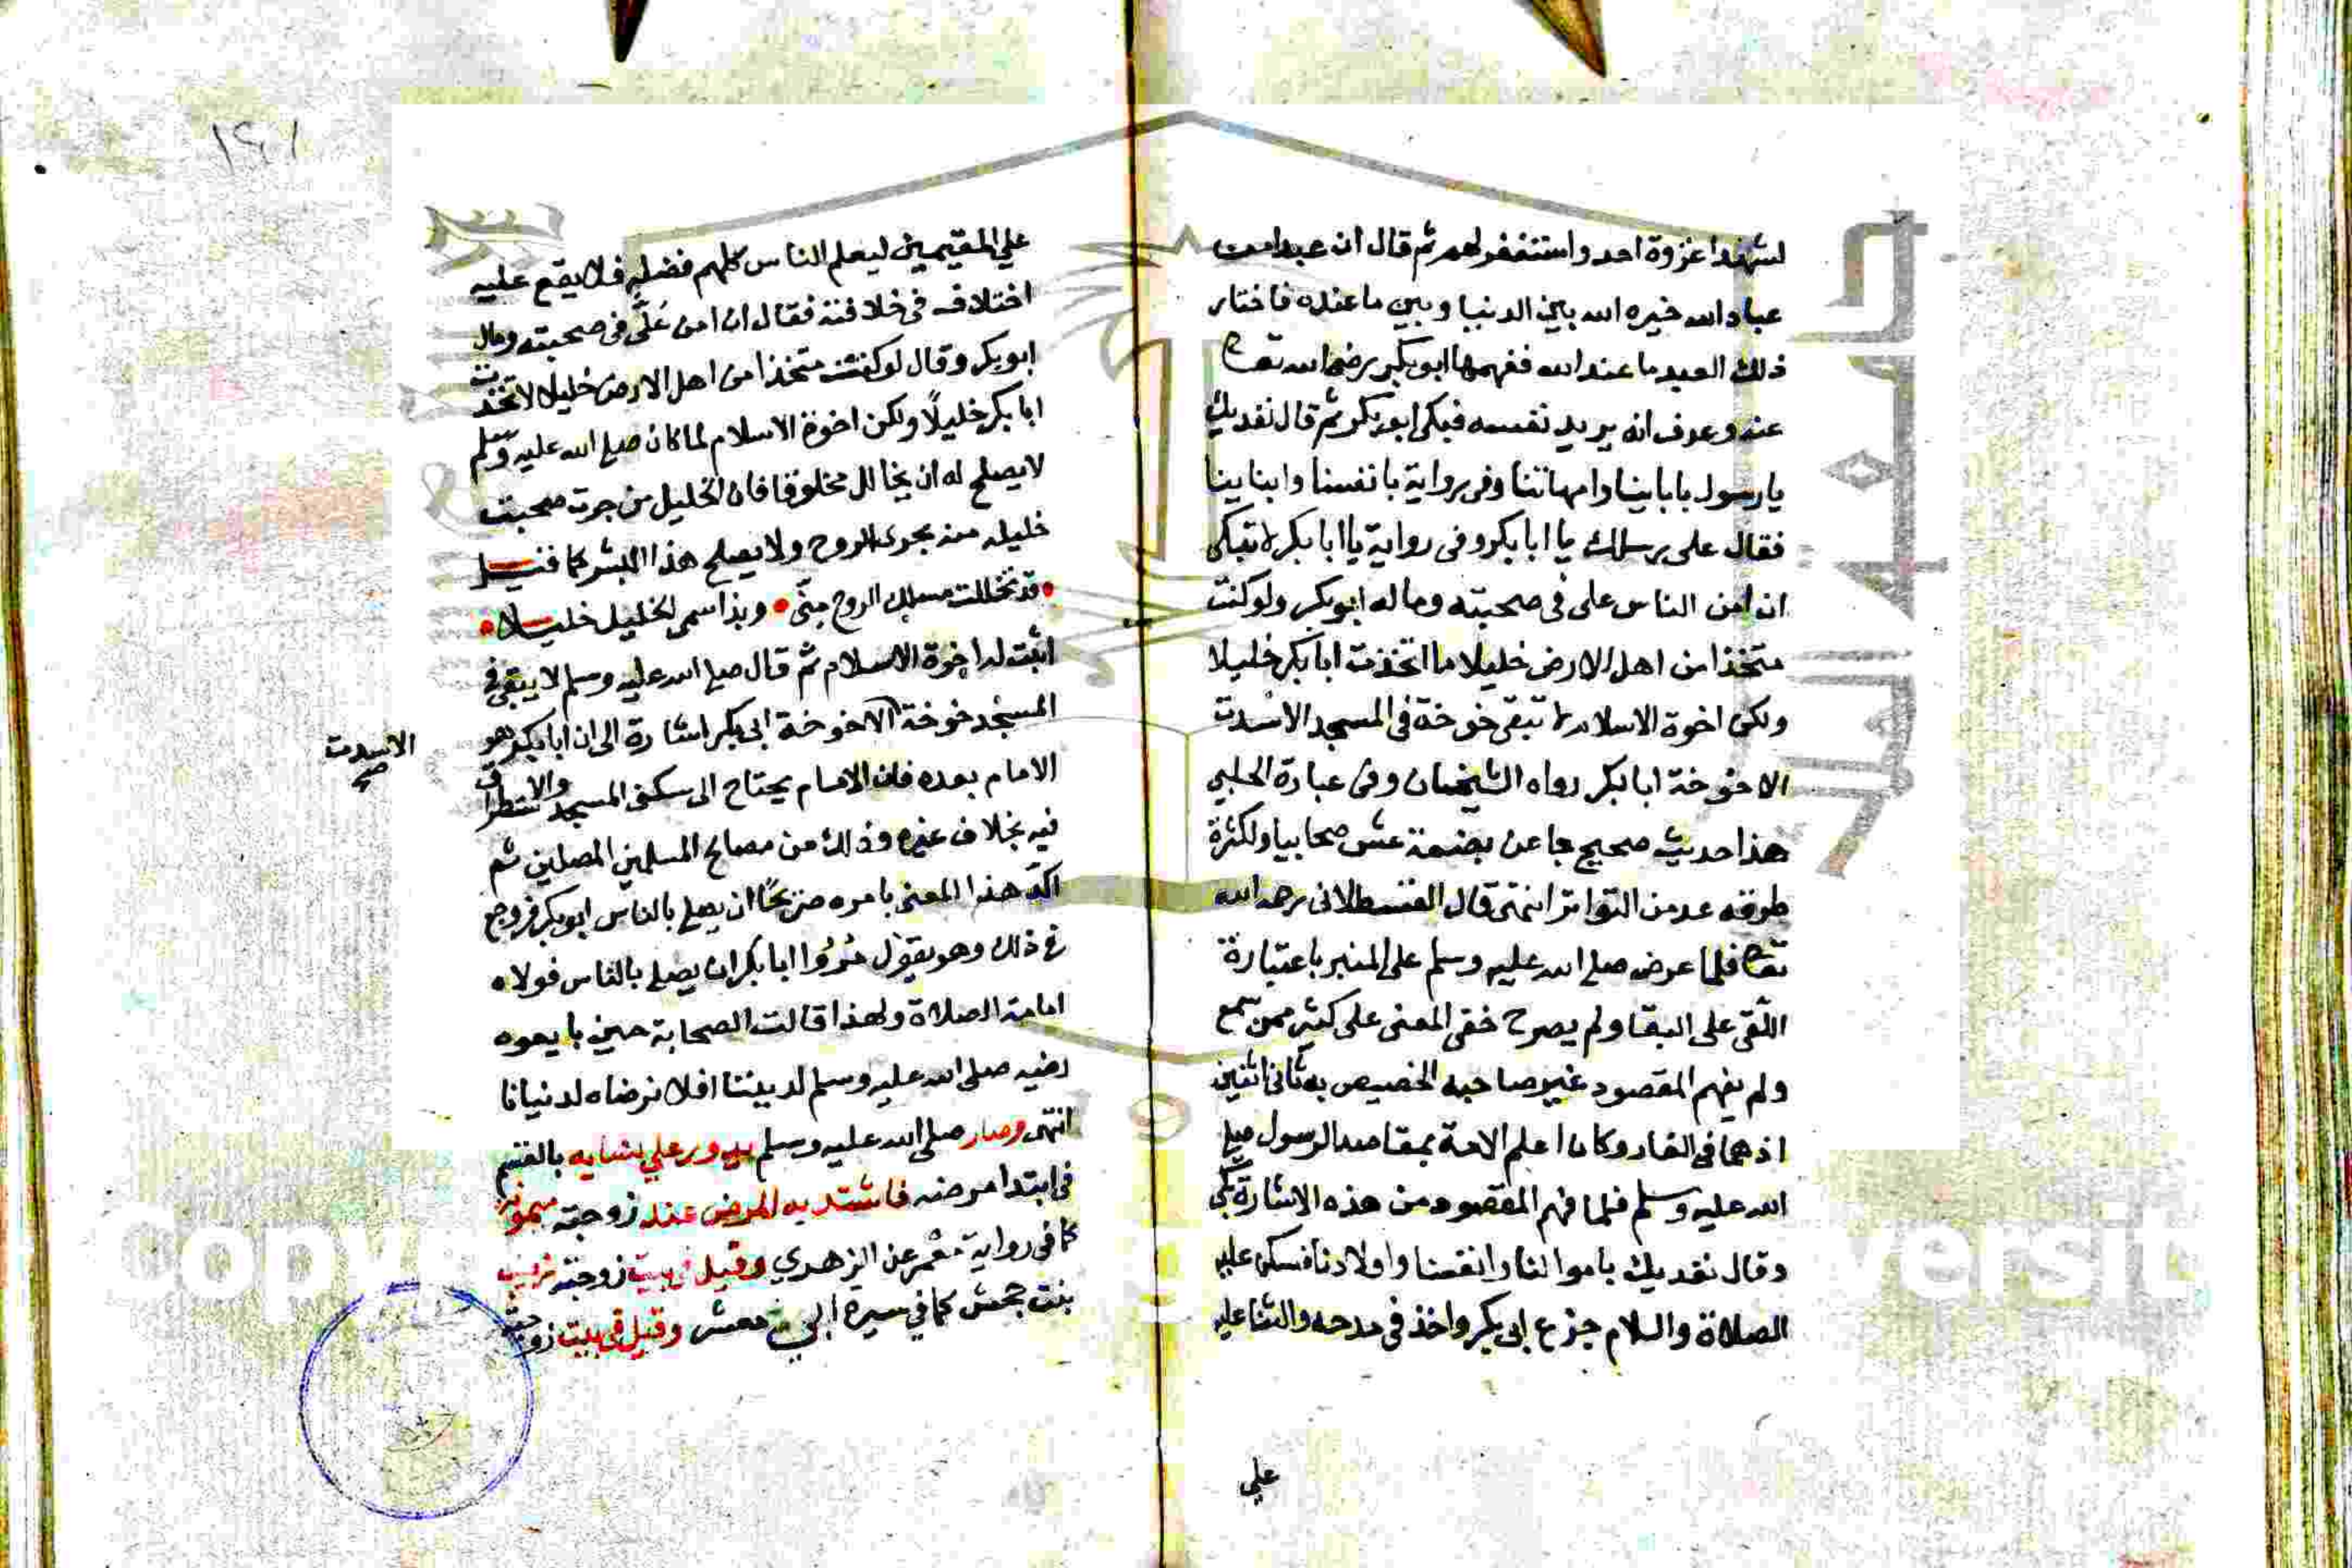 لشهدا غزوة احد واستغفر لهم ثم قال ان عبدا من
عباد الله خيره الله بين الدنيا وبين ما عنده فاختار
ذلك العبد ما عند الله ففهمها ابو بكر رضي الله تعا
عنه وعرف انه يريد نفسه فبكى ابو بكر ثم قال نفديك
يا رسول بابابينا وامهاتنا وفي رواية بانفسنا وابناينا
فقال على رسلك يا ابا بكر وفى رواية يا ابا بكر لا تبكى
ان امن الناس على فى صحبته وماله ابو بكر ولو كنت
متخذا من اهل الارض خليلا ما اتخذت ابا بكر خليلا
ولكن اخوة الاسلام لا تبقى خوخة فى المسجد الا سدت
الا خوخة ابا بكر رواه الشيخان وفى عبارة الحلبي
هذا حديث صحيح جا عن بضعة عشر صحابيا ولكثرة
طرقه عد من التواتر انتهى قال القسطلانى رحمه الله
تعا فلما عرض صلى الله عليه وسلم على المنبر باختياره
اللقى على البقا ولم يصرح خفى المعنى على كثير ممن سمع
ولم يفهم المقصود غير صاحبه الخصيص به ثانى اثنين
اذ هما فى الغار وكان اعلم الامة بمقاصد الرسول صلى
الله عليه وسلم فلما فهم المقصود من هذه الاشارة بكى
وقال نفديك باموالنا وانفسنا واولادنا فسكن عليه
الصلاة والسلام جزع ابى بكر واخذ فى مدحه والثنا عليه
علي
١٤١
علي المقيمين ليعلم الناس كلهم فضله فلا يقع عليه
اختلاف فى خلافته فقال ان امن علَّي فى صحبته وماله
ابو بكر وقال لو كنت متخذا من اهل الارض خليلا لاتخذت
ابا بكر خليلًا ولكن اخوة الاسلام لما كان صلى الله عليه وسلم
لا يصلح له ان يخالل مخلوقا فان الخليل من جرت صحبت
خليله منه مجرى الروح ولا يصلح هذا البشر كما قيل
قد تخللت مسلك الروح منّى وبذا سمى الخليل خليلا
اثبت له اخوة الاسلام ثم قال صلى الله عليه وسلم لا يبقى فى
المسجد خوخة الا خوخة ابى بكر اشارة الى ان ابا بكر هو
الا سدت صح
الامام بعده فان الامام يحتاج الى سكنى المسجد والاستطراق
فيه بخلاف غيره وذلك من مصالح المسلمين المصلين ثم
اكّد هذا المعنى بامره صريحًا ان يصلى بالناس ابو بكر فروجع
فى ذلك وهو يقول مُرُوا ابا بكر ان يصلى بالناس فولاه
امامة الصلاة ولهذا قالت الصحابة حين بايعوه
رضيه صلى الله عليه وسلم لديننا افلا نرضاه لدنيانا
انتهى وصار صلى الله عليه وسلم يدور علي نسايه بالقسم
فى ابتدا مرضه فاشتد به المرض عند زوجته ميمونه
كما فى رواية معمر عن الزهدي وقيل فى بيت زوجته زينب
بنت جحش كما في سيرة ابي معشر وقيل فى بيت زوجته